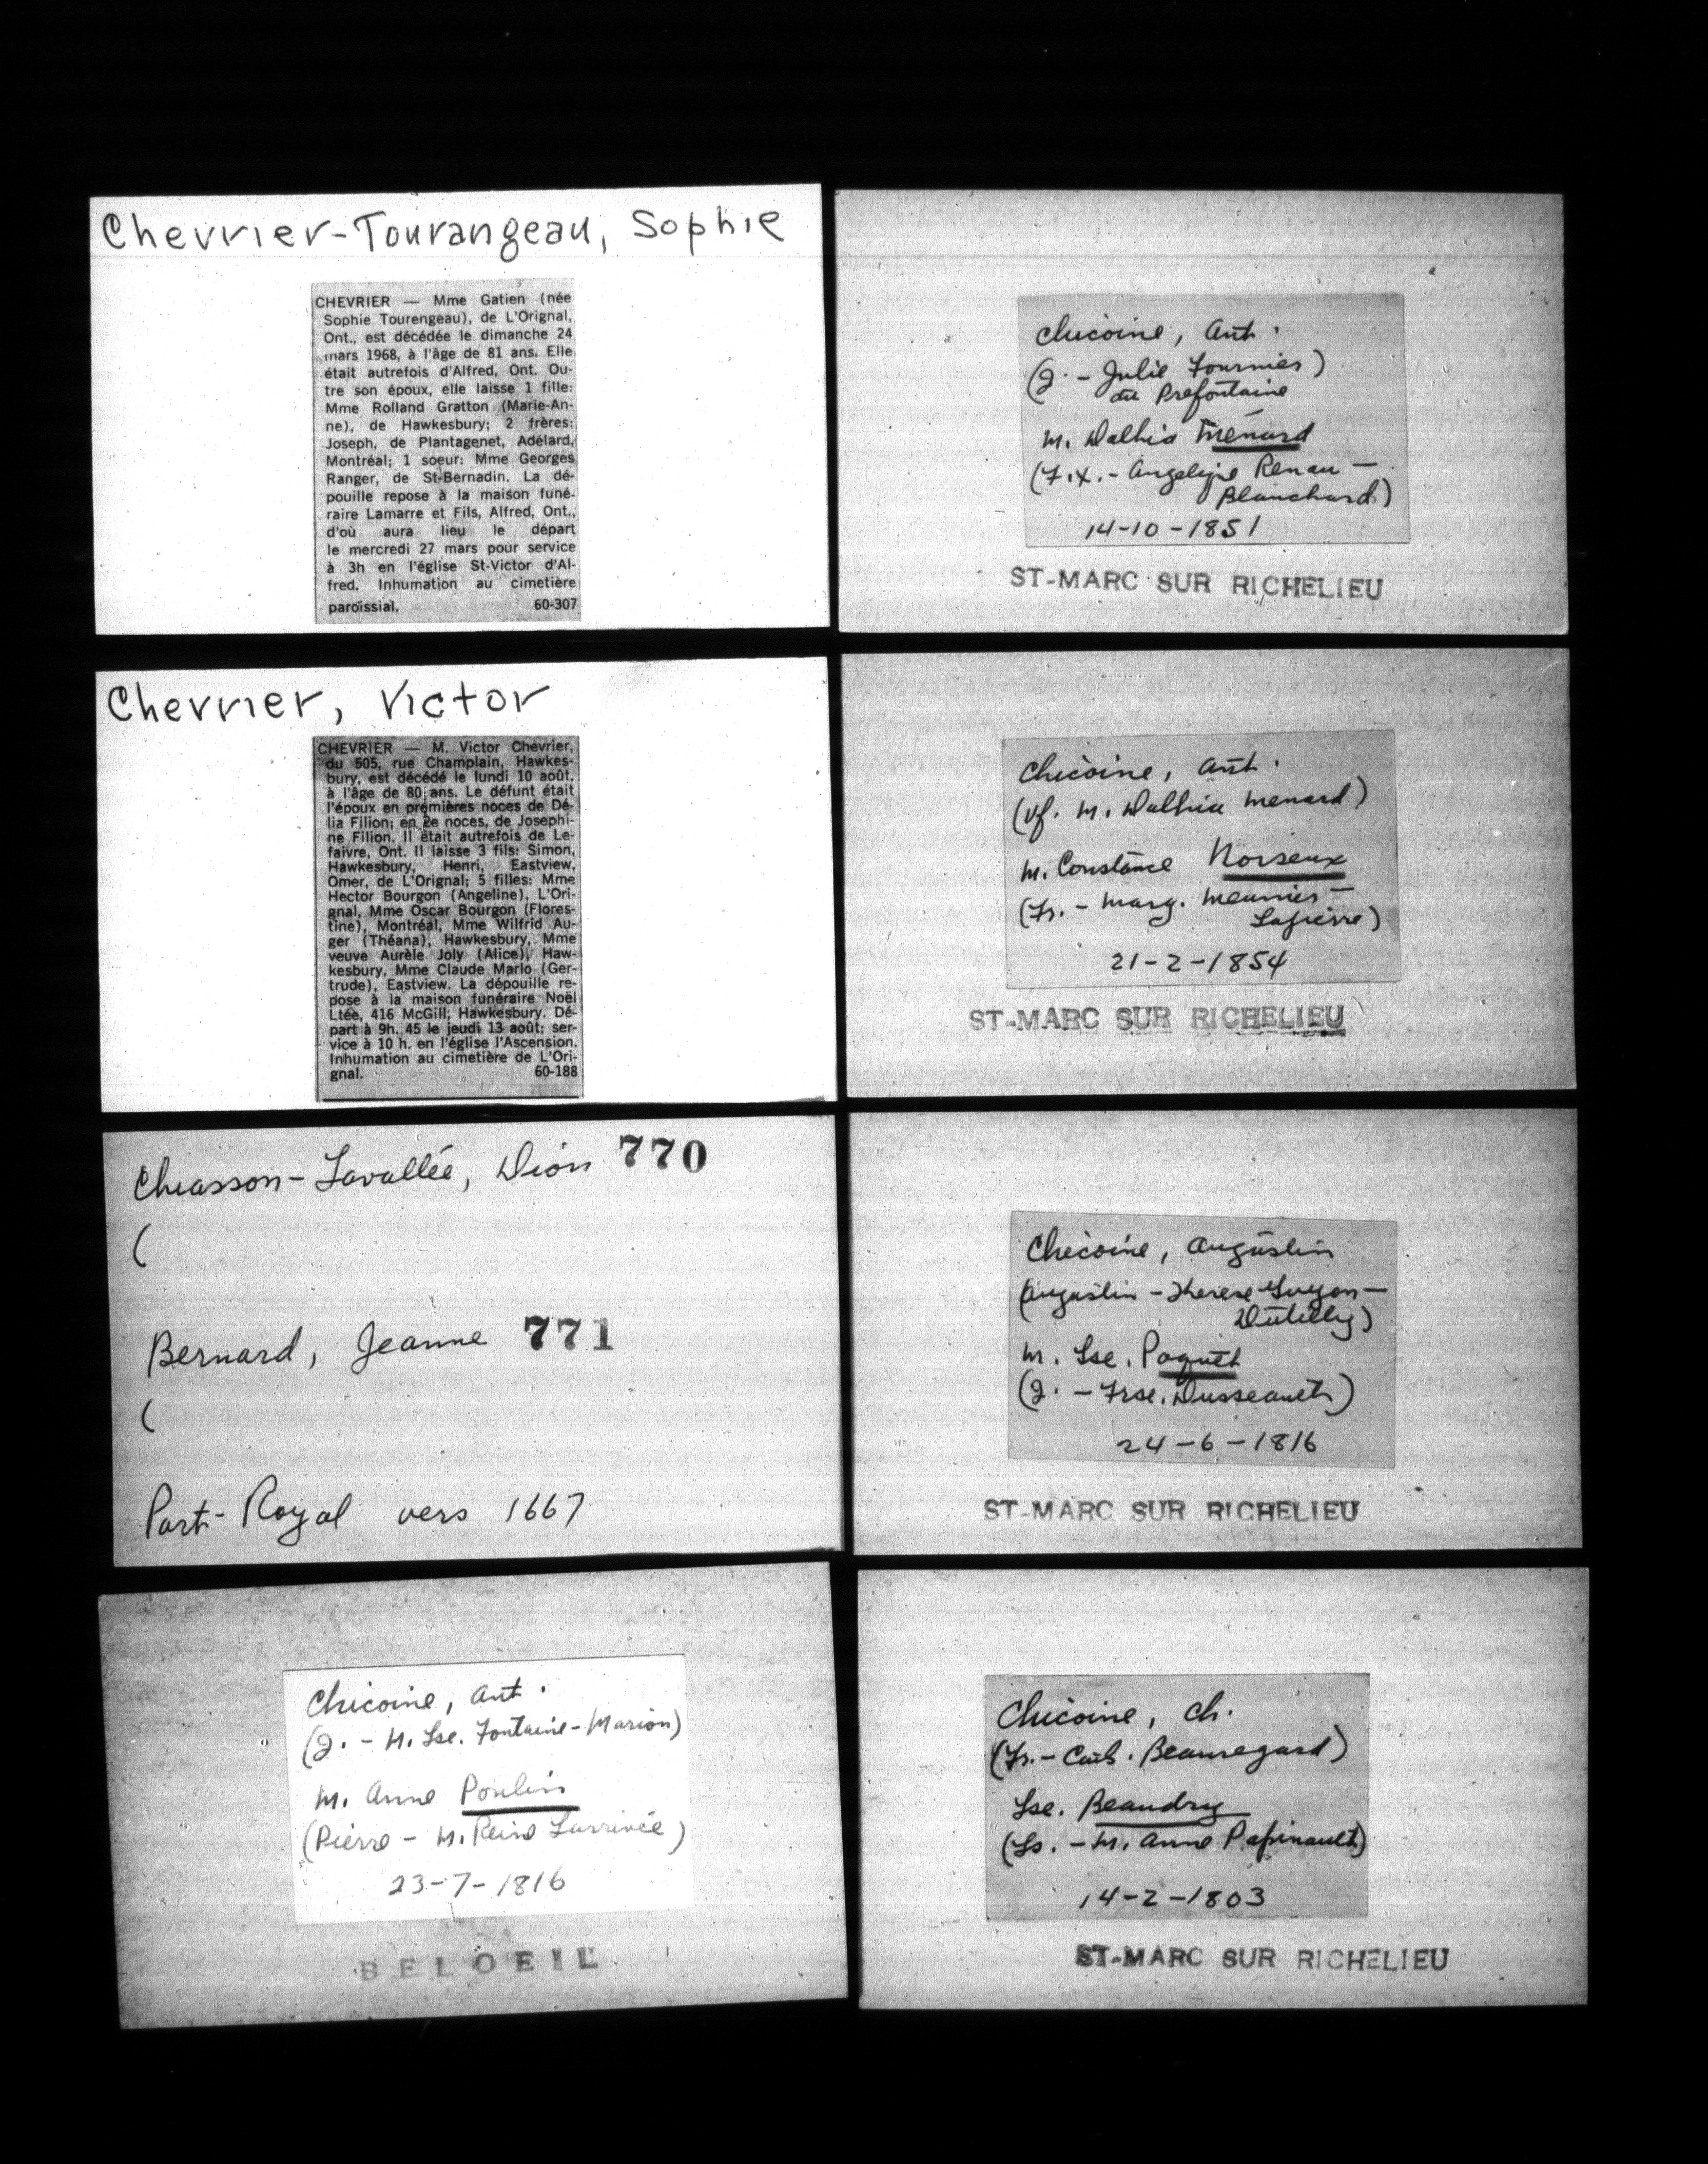 Chevrier-Tourangeau, Sophie
CHEVRIER — Mme Gatien (née
Sophie Tourengeau), de L'Orignal,
Ont., est décédée le dimanche 24
mars 1968, à l'âge de 81 ans. Elle
était autrefois d'Alfred, Ont. Ou-
tre son époux, elle laisse 1 fille:
Mme Rolland Gratton (Marie-An-
ne), de Hawkesbury; 2 frères:
Joseph, de Plantagenet, Adélard,
Montréal; 1 soeur: Mme Georges
Ranger, de St-Bernadin. La dé-
pouille repose à la maison funé-
raire Lamarre et Fils, Alfred, Ont.,
d'où aura lieu le départ
le mercredi 27 mars pour service
à 3h en l'église St-Victor d'Al-
fred. Inhumation au cimetière
paroissial. 60-307
Chevrier, Victor
CHEVRIER — M. Victor Chevrier,
du 505, rue Champlain, Hawkes-
bury, est décédé le lundi 10 août,
à l'âge de 80 ans. Le défunt était
l'époux en premières noces de Dé-
lia Filion; en 2e noces, de Josephi-
ne Filion. Il était autrefois de Le-
faivre, Ont. Il laisse 3 fils: Simon,
Hawkesbury, Henri, Eastview,
Omer, de L'Orignal; 5 filles: Mme
Hector Bourgon (Angeline), L'Ori-
gnal, Mme Oscar Bourgon (Flores-
tine), Montréal, Mme Wilfrid Au-
ger (Théana), Hawkesbury, Mme
veuve Aurèle Joly (Alice), Haw-
kesbury, Mme Claude Marlo (Ger-
trude), Eastview. La dépouille re-
pose à la maison funéraire Noël
Ltée, 416 McGill, Hawkesbury. Dé-
part à 9h. 45 le jeudi 13 août; ser-
vice à 10 h. en l'église l'Ascension.
Inhumation au cimetière de L'Ori-
gnal. 60-188
Chiasson-Lavallée, Dion 770
(
Bernard, Jeanne 771
(
Port-Royal vers 1667
Chicoine, Ant.
(J. - M. Lse. Fontaine-Marion)
M. Anne Poulin
(Pierre - M. Reine Larrivée)
23-7-1816
BELOEIL
Chicoine, Ant.
(J. - Julie Fournier)
dit Prefontaine
M. Dalhia Menard
(F.X. - Angelique Renau -
Blanchard)
14-10-1851
ST-MARC SUR RICHELIEU
Chicoine, Ant.
(Vf. M. Dalhia Menard)
M. Constance Noiseux
(Fr. - Marg. Meunier -
Lapierre)
21-2-1854
ST-MARC SUR RICHELIEU
Chicoine, Augustin
(Augustin - Therese Guyon -
Dutilly)
M. Lse. Paquet
(J. - Frse. Dusseault)
24-6-1816
ST-MARC SUR RICHELIEU
Chicoine, Ch.
(Fr. - Cath. Beauregard)
Lse. Beaudry
(Ls. - M. Anne Papinault)
14-2-1803
ST-MARC SUR RICHELIEU